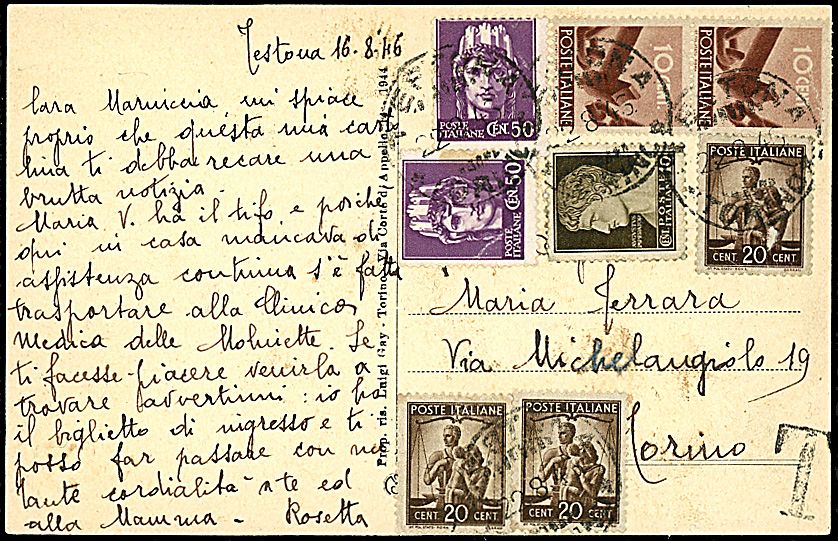 Testona 16-8-46
Cara Mariuccia mi spiace
proprio che questa mia carto
lina ti debba recare una
brutta notizia.
Maria V. ha il tifo e poichè
qui in casa mancava di
assistenza continua s'è fatta
trasportare alla Clinica
Medica delle Molinette. Se
ti facesse piacere venirla a
trovare avvertimi: io ho
il biglietto di ingresso e ti
posso far passare con me
tante cordialità a te ed
alla Mamma - Rosetta
Prop. ris. Luigi Gay - Torino, Via Corte di Appello 1944
POSTE ITALIANE CENT. 50
POSTE ITALIANE 10 CENT.
POSTE ITALIANE 10 CENT.
POSTE ITALIANE CENT. 50
POSTE ITALIANE
POSTE ITALIANE
CENT. 20 CENT.
Maria Ferrara
Via Michelangiolo 19
Torino
POSTE ITALIANE
CENT. 20 CENT.
POSTE ITALIANE
CENT. 20 CENT.
T